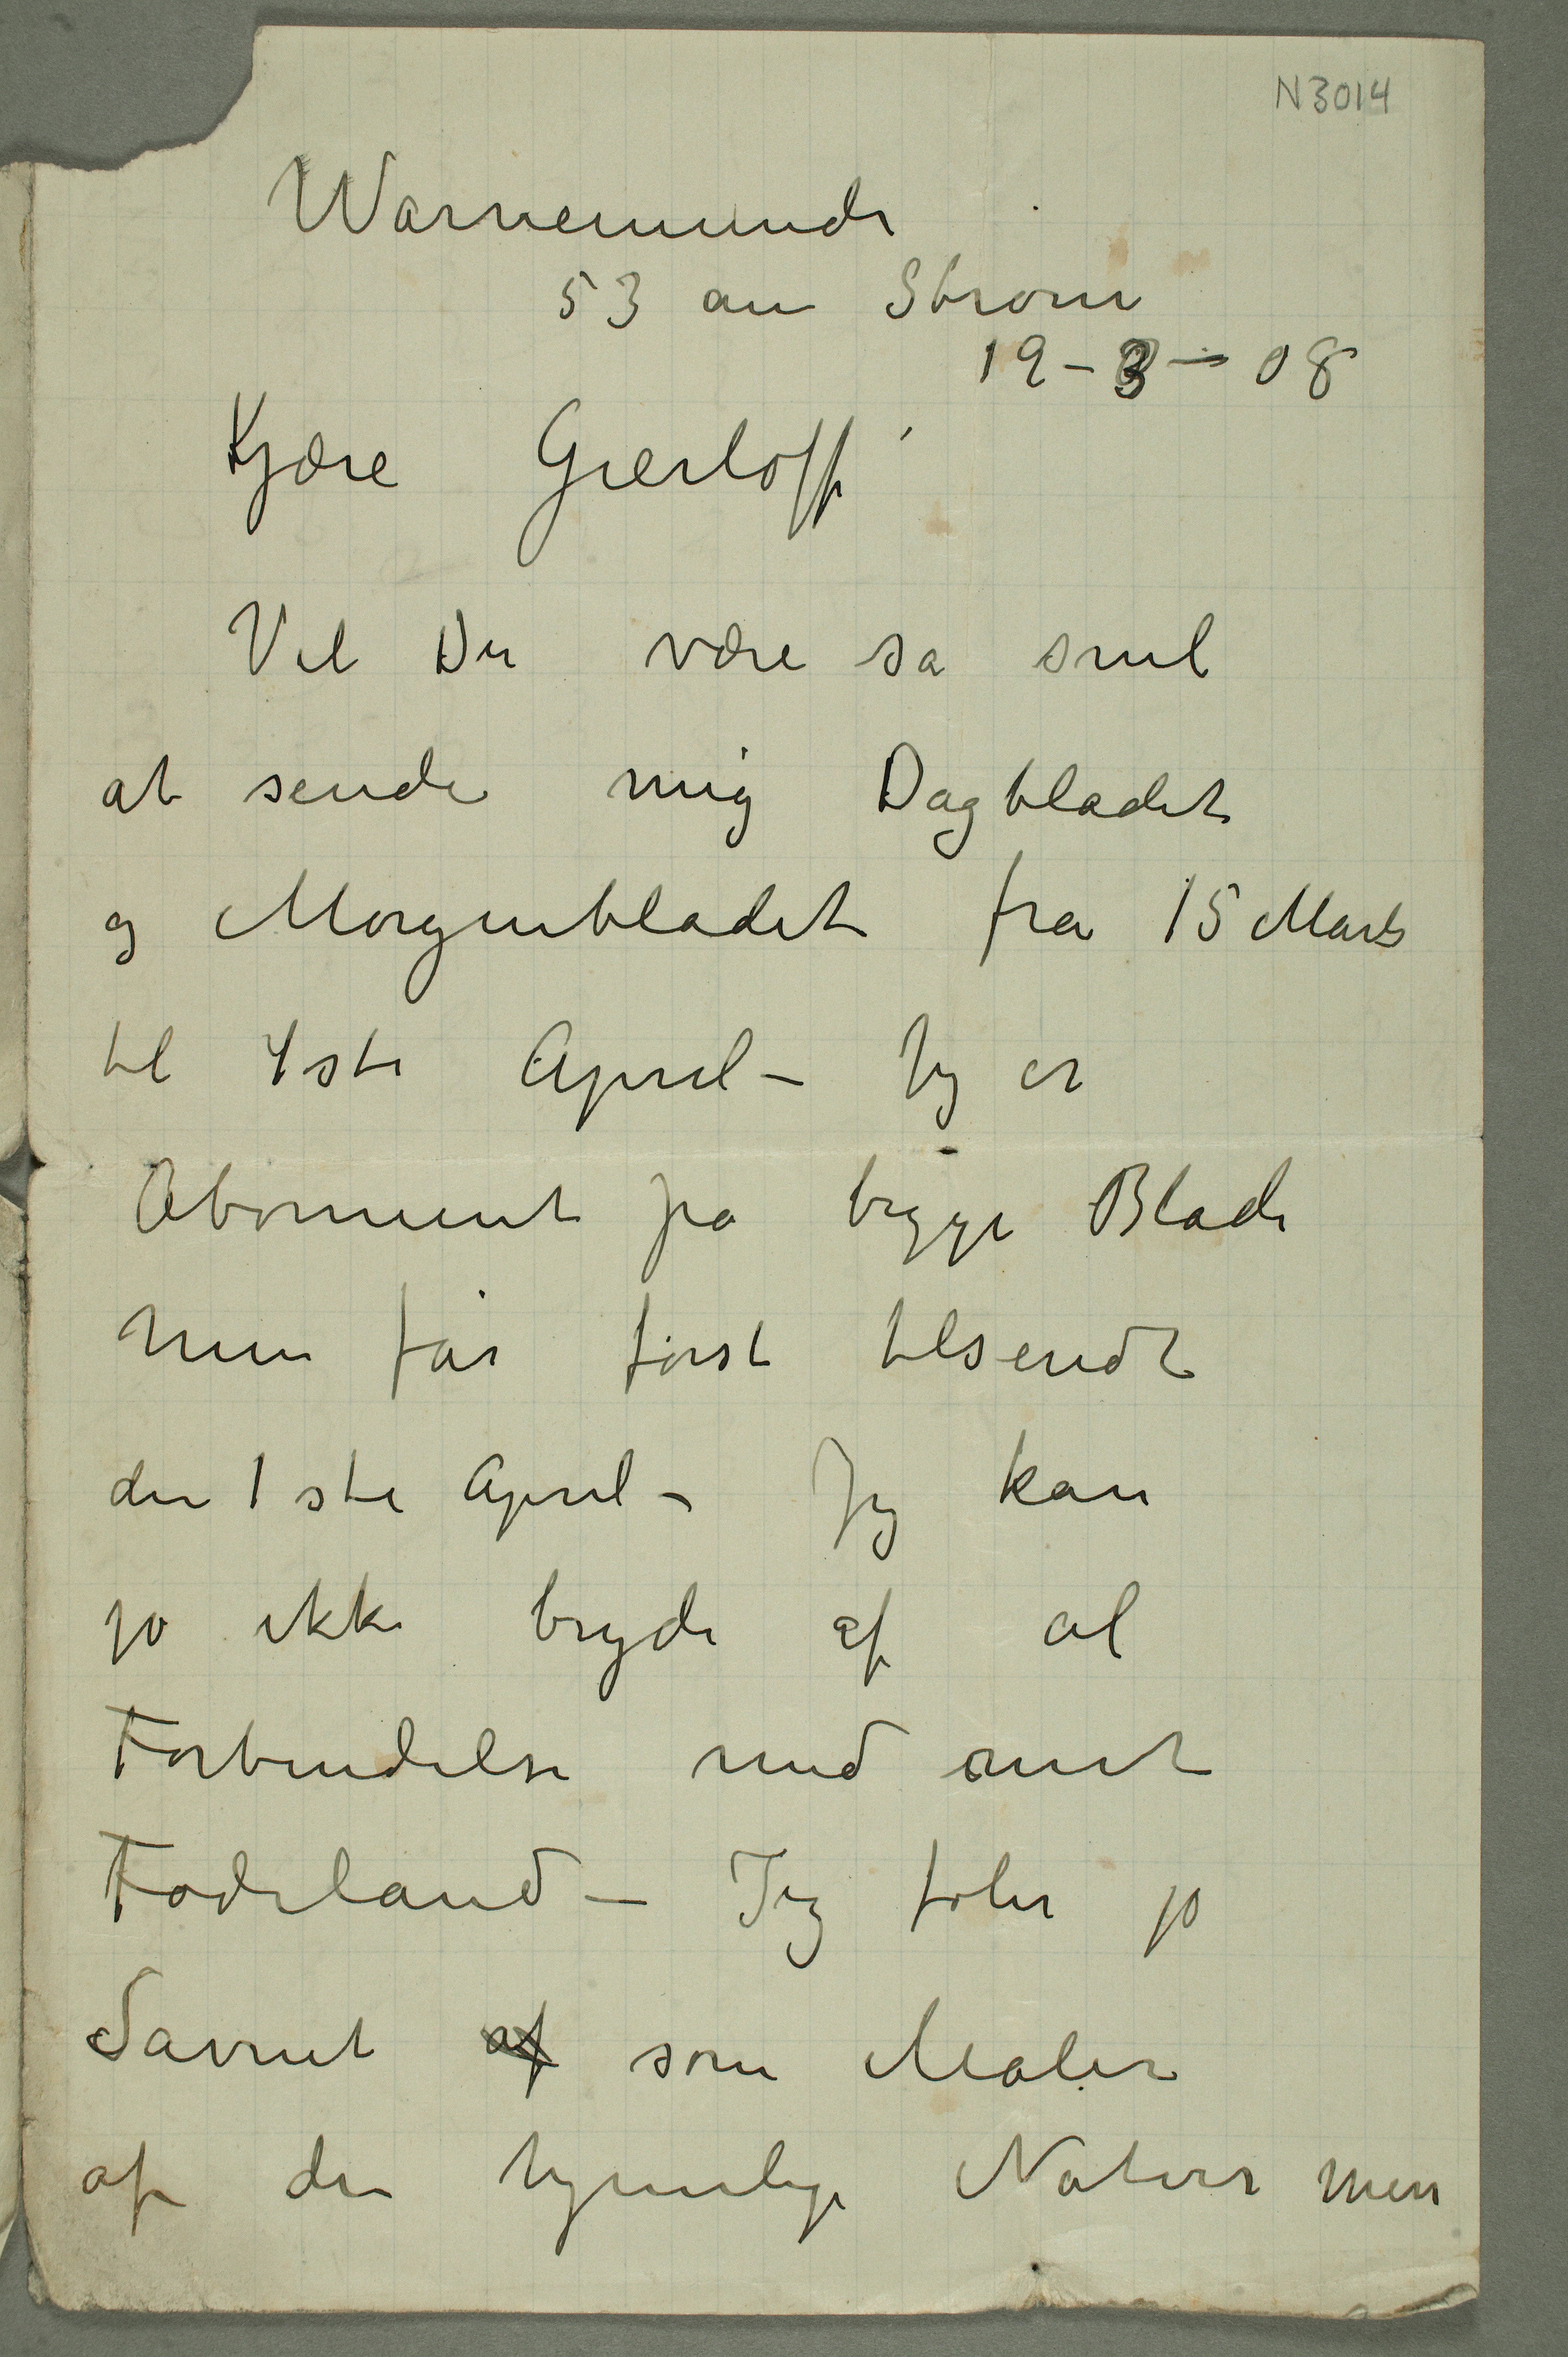 N3014
Warnemunde
53 am Strom
19-3-08
Kjære Gierløff
Vil Du være så snil
at sende mig Dagbladet
og Morgenbladet fra 15 Marts
til 1ste April – Jeg er
Abonnent på begge Blade
men får først tilsendt
den 1ste April – Jeg kan
jo ikke bryde af al
Forbindelse med mit
Fødeland – Jeg føler jo
Savnet af som Maler
af den hjemlige Natur men